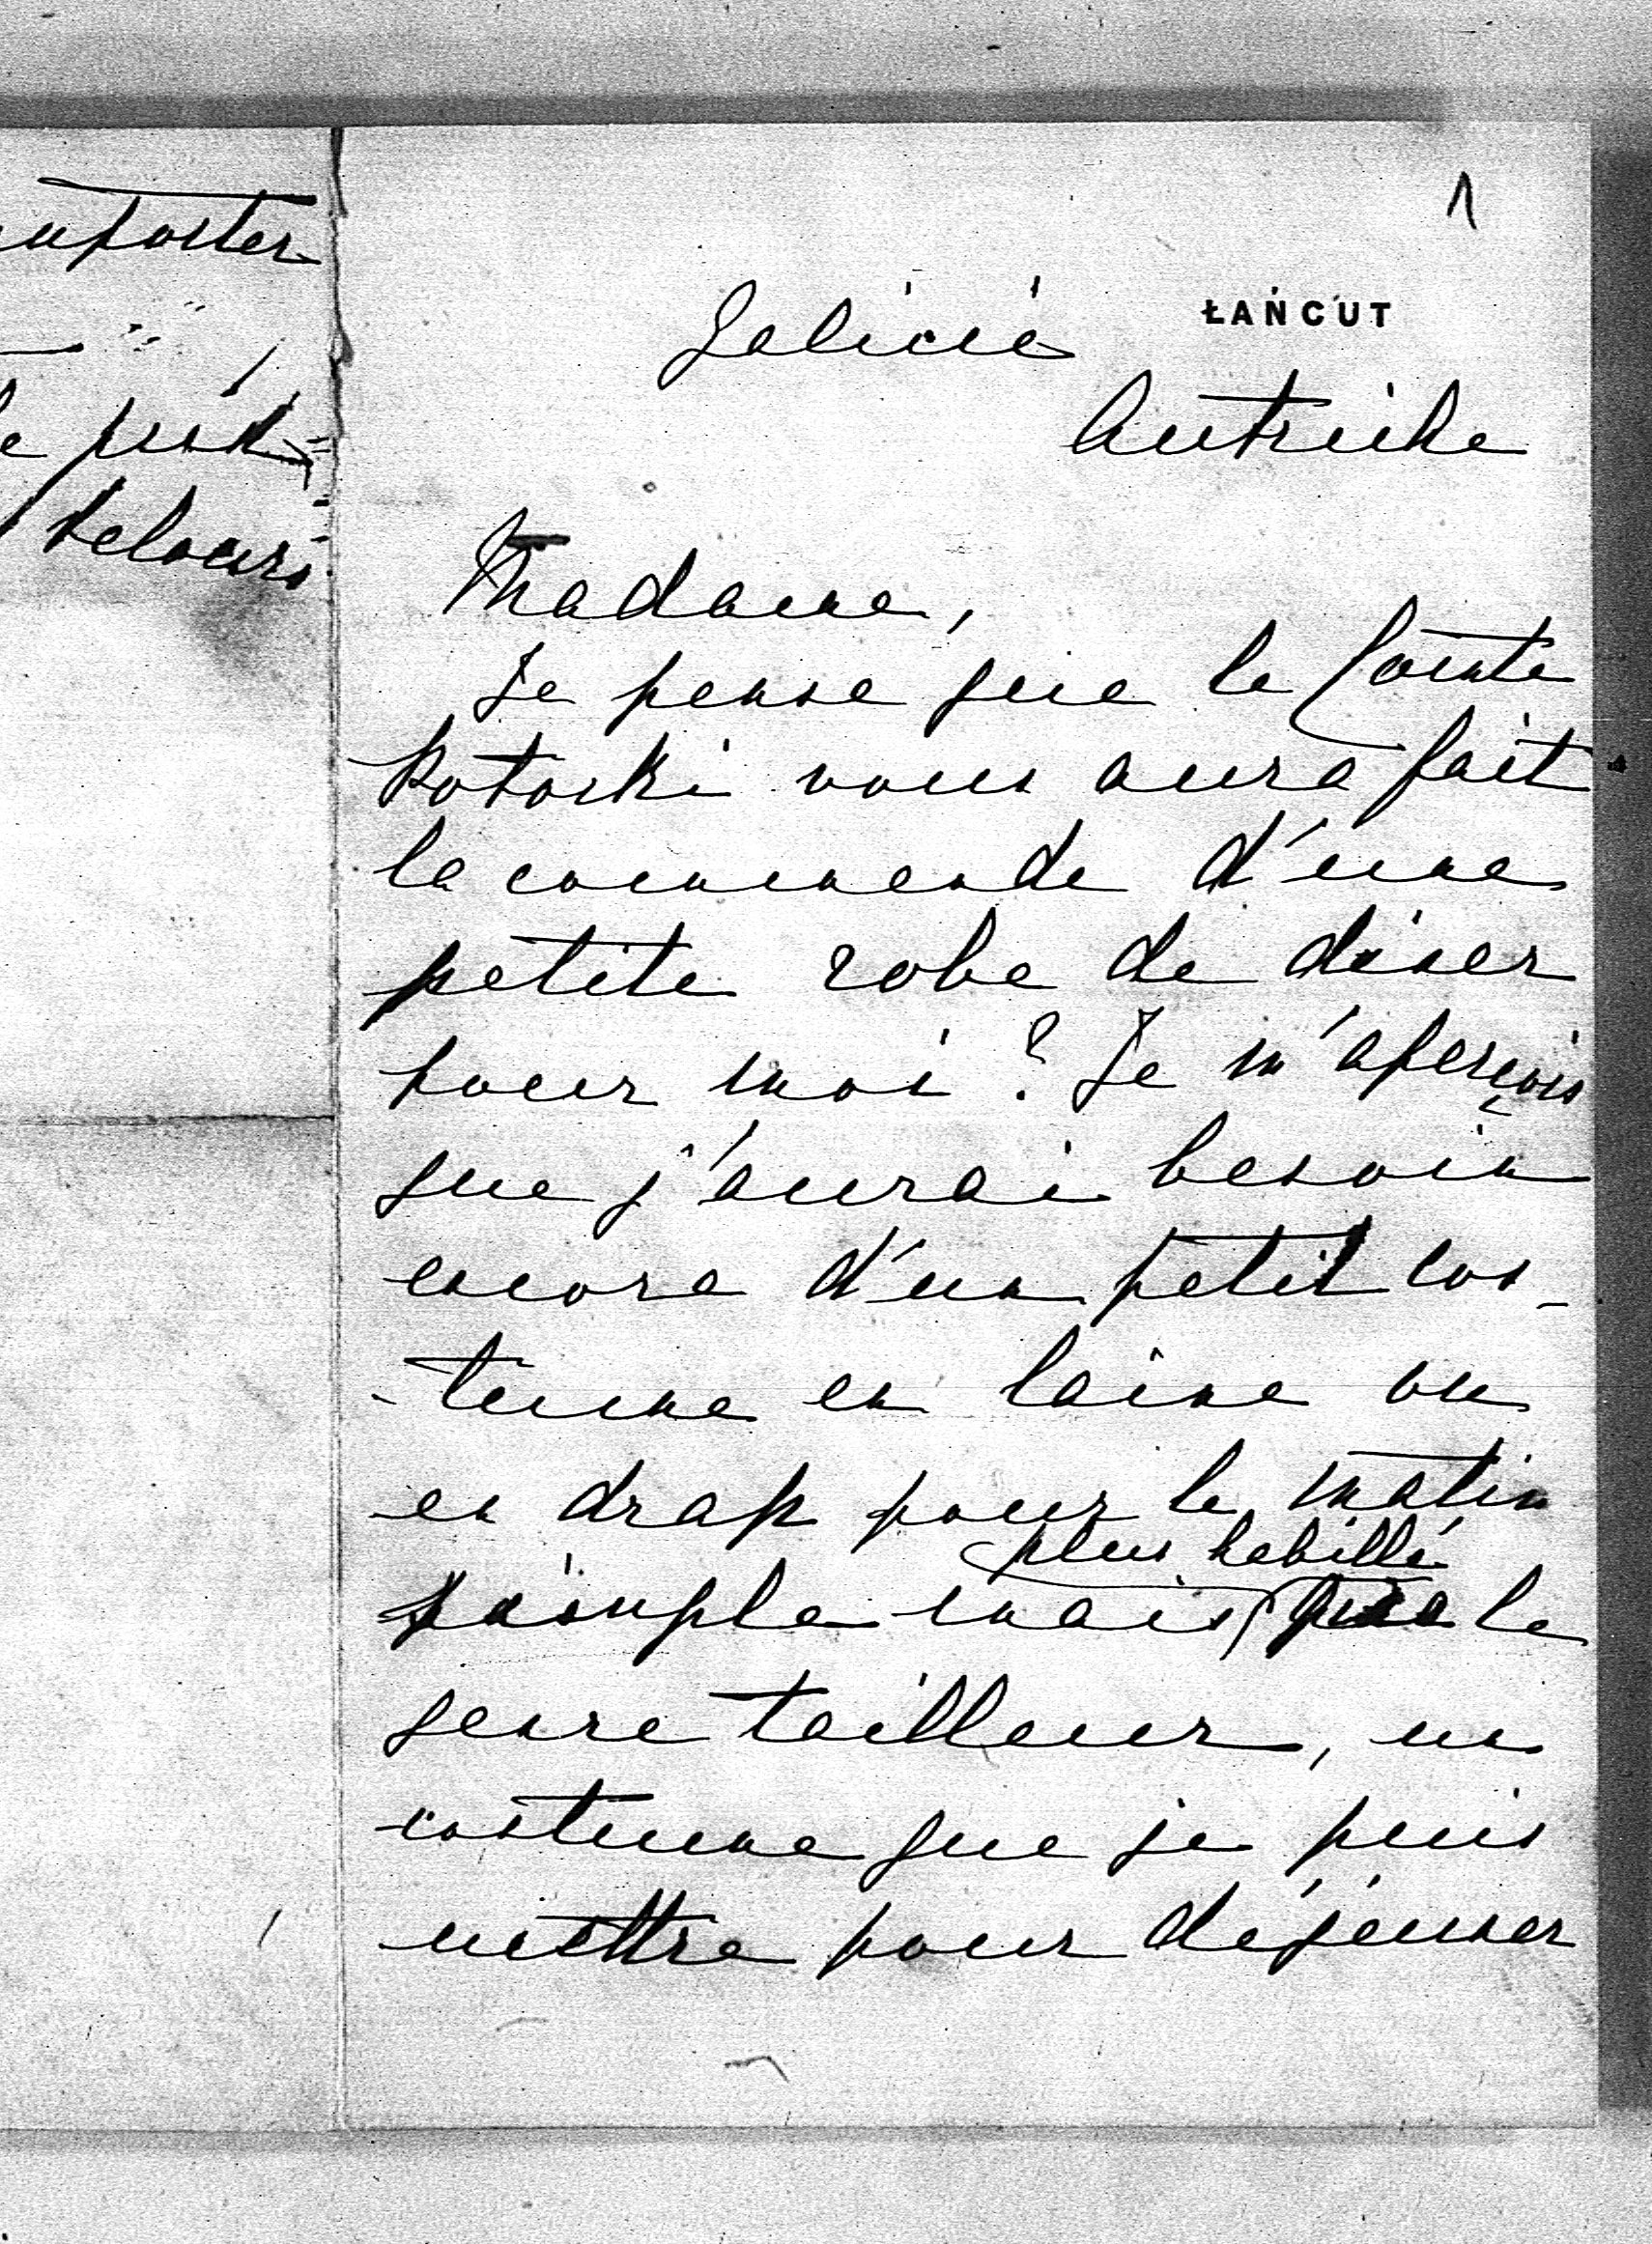 1
ŁAŃCUT
Galicie
Autriche
Madame,
Je pense que le Comte
Potocki vous aura fait
la commande d'une
petite robe de dîner
pour moi ? Je m'aperçois
que j'aurai besoin
encore d'un petit cos-
-tume en laine ou
en drap pour le matin
plus habillé
simple mais que le
genre tailleur, un
costume que je puis
mettre pour déjeuner
velours